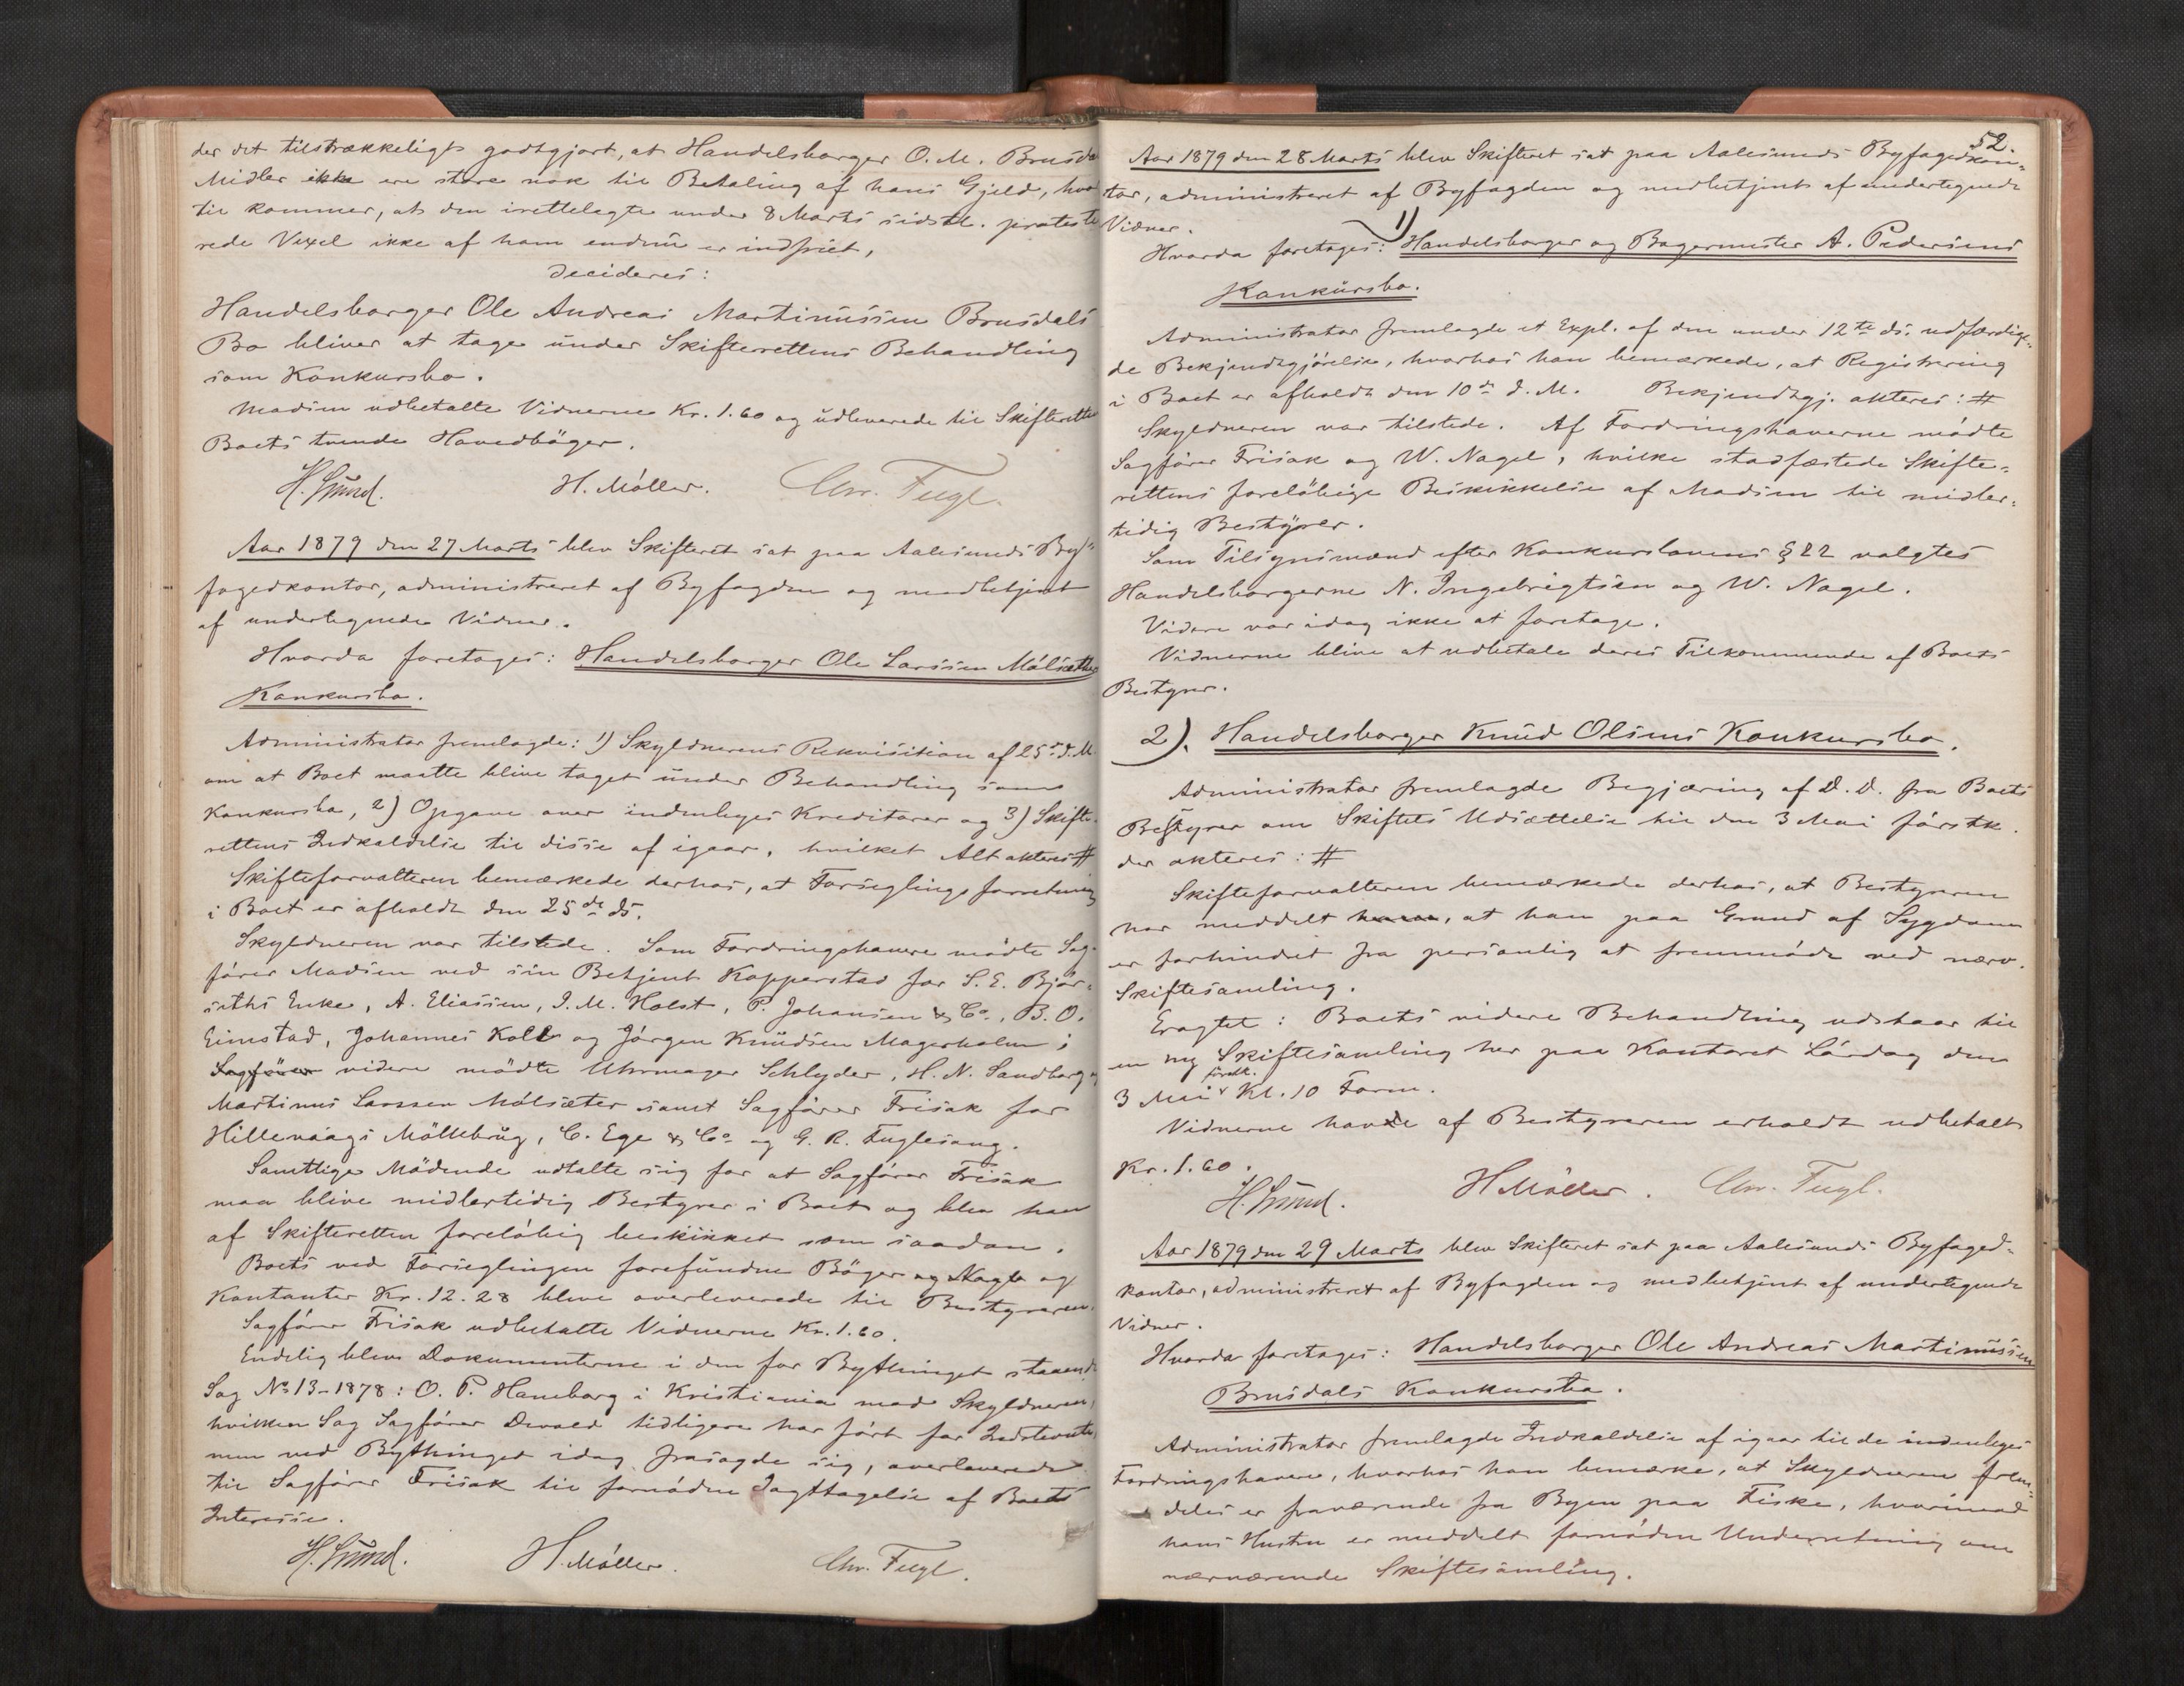 der det tilstrækkeligt godtgjort, at Handelsborger O. M. Brusda
Midler ikke ere store nok til Betaling af hans Gjeld, hvor
til kommer, at den irettelagte under 8 Marts sidstl. proteste
rede Vexel ikke af ham endnu er indfriet,
decideres:
Handelsborger Ole Andreas Martinussen Brusdals
Bo bliver at tage under Skifterettens Behandling
som Konkursbo.
Madsen udbetalte Vidnerne Kr. 1.60 og udleverede til Skifterette
Boets tvende Hovedbøger.
H. Møller. Chr. Fugl.
Aar 1879 den 27 Marts blev Skifteret sat paa Aalesunds By-
fogedkontor, administreret af Byfogden og medbetjent
af undertegnede Vidner.
Hvorda foretoges: Handelsborger Ole Larssen Målsæthe
Konkursbo.
Administrator fremlagde: 1) Skyldnerens Rekvisition af 25de d. M.
om at Boet maatte blive taget under Behandling som
Konkursbo, 2) Opgave over indenbyes Kreditorer og 3) Skifte-
rettens Indkaldelse til disse af igaar, hvilket Alt akteres #
Skifteforvalteren bemærkede derhos, at Forseglingsforretning
i Boet er afholdt den 25de ds.
Skyldneren var tilstede. Som Fordringshavere mødte Sag-
fører Madsen ved sin Betjent Kopperstad for S. E. Bjør-
seths Enke, A. Eliassen, I. M. Holst, P. Johansen & Co., B. O.
Eimstad, Johannes Kolt og Jørgen Knudsen Magerholm;
Sagfører videre mødte Uhrmager Schlyder, H. N. Sandborg
Martinus Larssen Målsæter samt Sagfører Frisak for
Hillevaags Møllebrug, C. Ege & Co. og G. R. Fuglesang.
Samtlige Mødende udtalte sig for at Sagfører Frisak
maa blive midlertidig Bestyrer i Boet og blev han
af Skifteretten foreløbig beskikket som saadan.
Boets ved Forseglingen forefundne Bøger og Nøgle og
Kontanter Kr. 12.28 bleve overleverede til Bestyreren.
Sagfører Frisak udbetalte Vidnerne Kr. 1.60.
Endelig bleve Dokumenterne i den for Bythinget staaende
Sag No 13-1878: O. P. Haneborg i Kristiania mod Skyldneren,
hvilken Sag Sagfører Devold tidligere har ført for Indstevnte,
men ved Bythinget idag frasagde sig, overleverede
til Sagfører Frisak til fornøden Iagttagelse af Boets
Interesse.
H. Møller. Chr. Fugl.
52.
Aar 1879 den 28 Marts blev Skifteret sat paa Aalesunds Byfogedkon-
tor, administreret af Byfogden og medbetjent af undertegnede
Vidner.
Hvorda foretoges: 1) Handelsborger og Bagermester A. Pedersens
Konkursbo.
Administrator fremlagde et Expl. af den under 12te ds. udfærdige-
de Bekjendtgjørelse, hvorhos han bemærkede, at Registrering
i Boet er afholdt den 10de d. M. Bekjendtgj. akteres: #
Skyldneren var tilstede. Af Fordringshaverne mødte
Sagfører Frisak og W. Nagel, hvilke stadfæstede Skifte-
rettens foreløbige Beskikkelse af Madsen til midler-
tidig Bestyrer.
Som Tilsynsmænd efter Konkurslovens § 22 valgtes
Handelsborgerne N. Ingebrigtsen og W. Nagel.
Videre var idag ikke at foretage.
Vidnerne blive at udbetale deres Tilkommende af Boets
Bestyrer.
2). Handelsborger Knud Olsens Konkursbo.
Administrator fremlagde Begjæring af D. D. fra Boets
Bestyrer om Skiftets Udsættelse til den 3 Mai førstk.
der akteres: #
Skifteforvalteren bemærkede derhos, at Bestyreren
har meddelt, at han paa Grund af Sygdom
er forhindret fra personlig at fremmøde ved nærv.
Skiftesamling.
Eragtet: Boets videre Behandling udstaar til
en ny Skiftesamling her paa Kontoret Lørdag den
3 Mai førstk. Kl. 10 Form.
Vidnerne havde af Bestyreren erholdt udbetalt
Kr. 1.60.
H Møller. Chr. Fugl.
Aar 1879 den 29 Marts blev Skifteret sat paa Aalesunds Byfoged-
kontor, administreret af Byfogden og medbetjent af undertegnede
Vidner.
Hvorda foretoges: Handelsborger Ole Andreas Martinussen
Brusdals Konkursbo.
Administrator fremlagde Indkaldelse af igaar til de indenbyes
Fordringshavere, hvorhos han bemærke, at Skyldneren frem-
deles er fraværende fra Byen paa Fiske, hvorimod
hans Hustru er meddelt fornøden Underretning om
nærværende Skiftesamling.